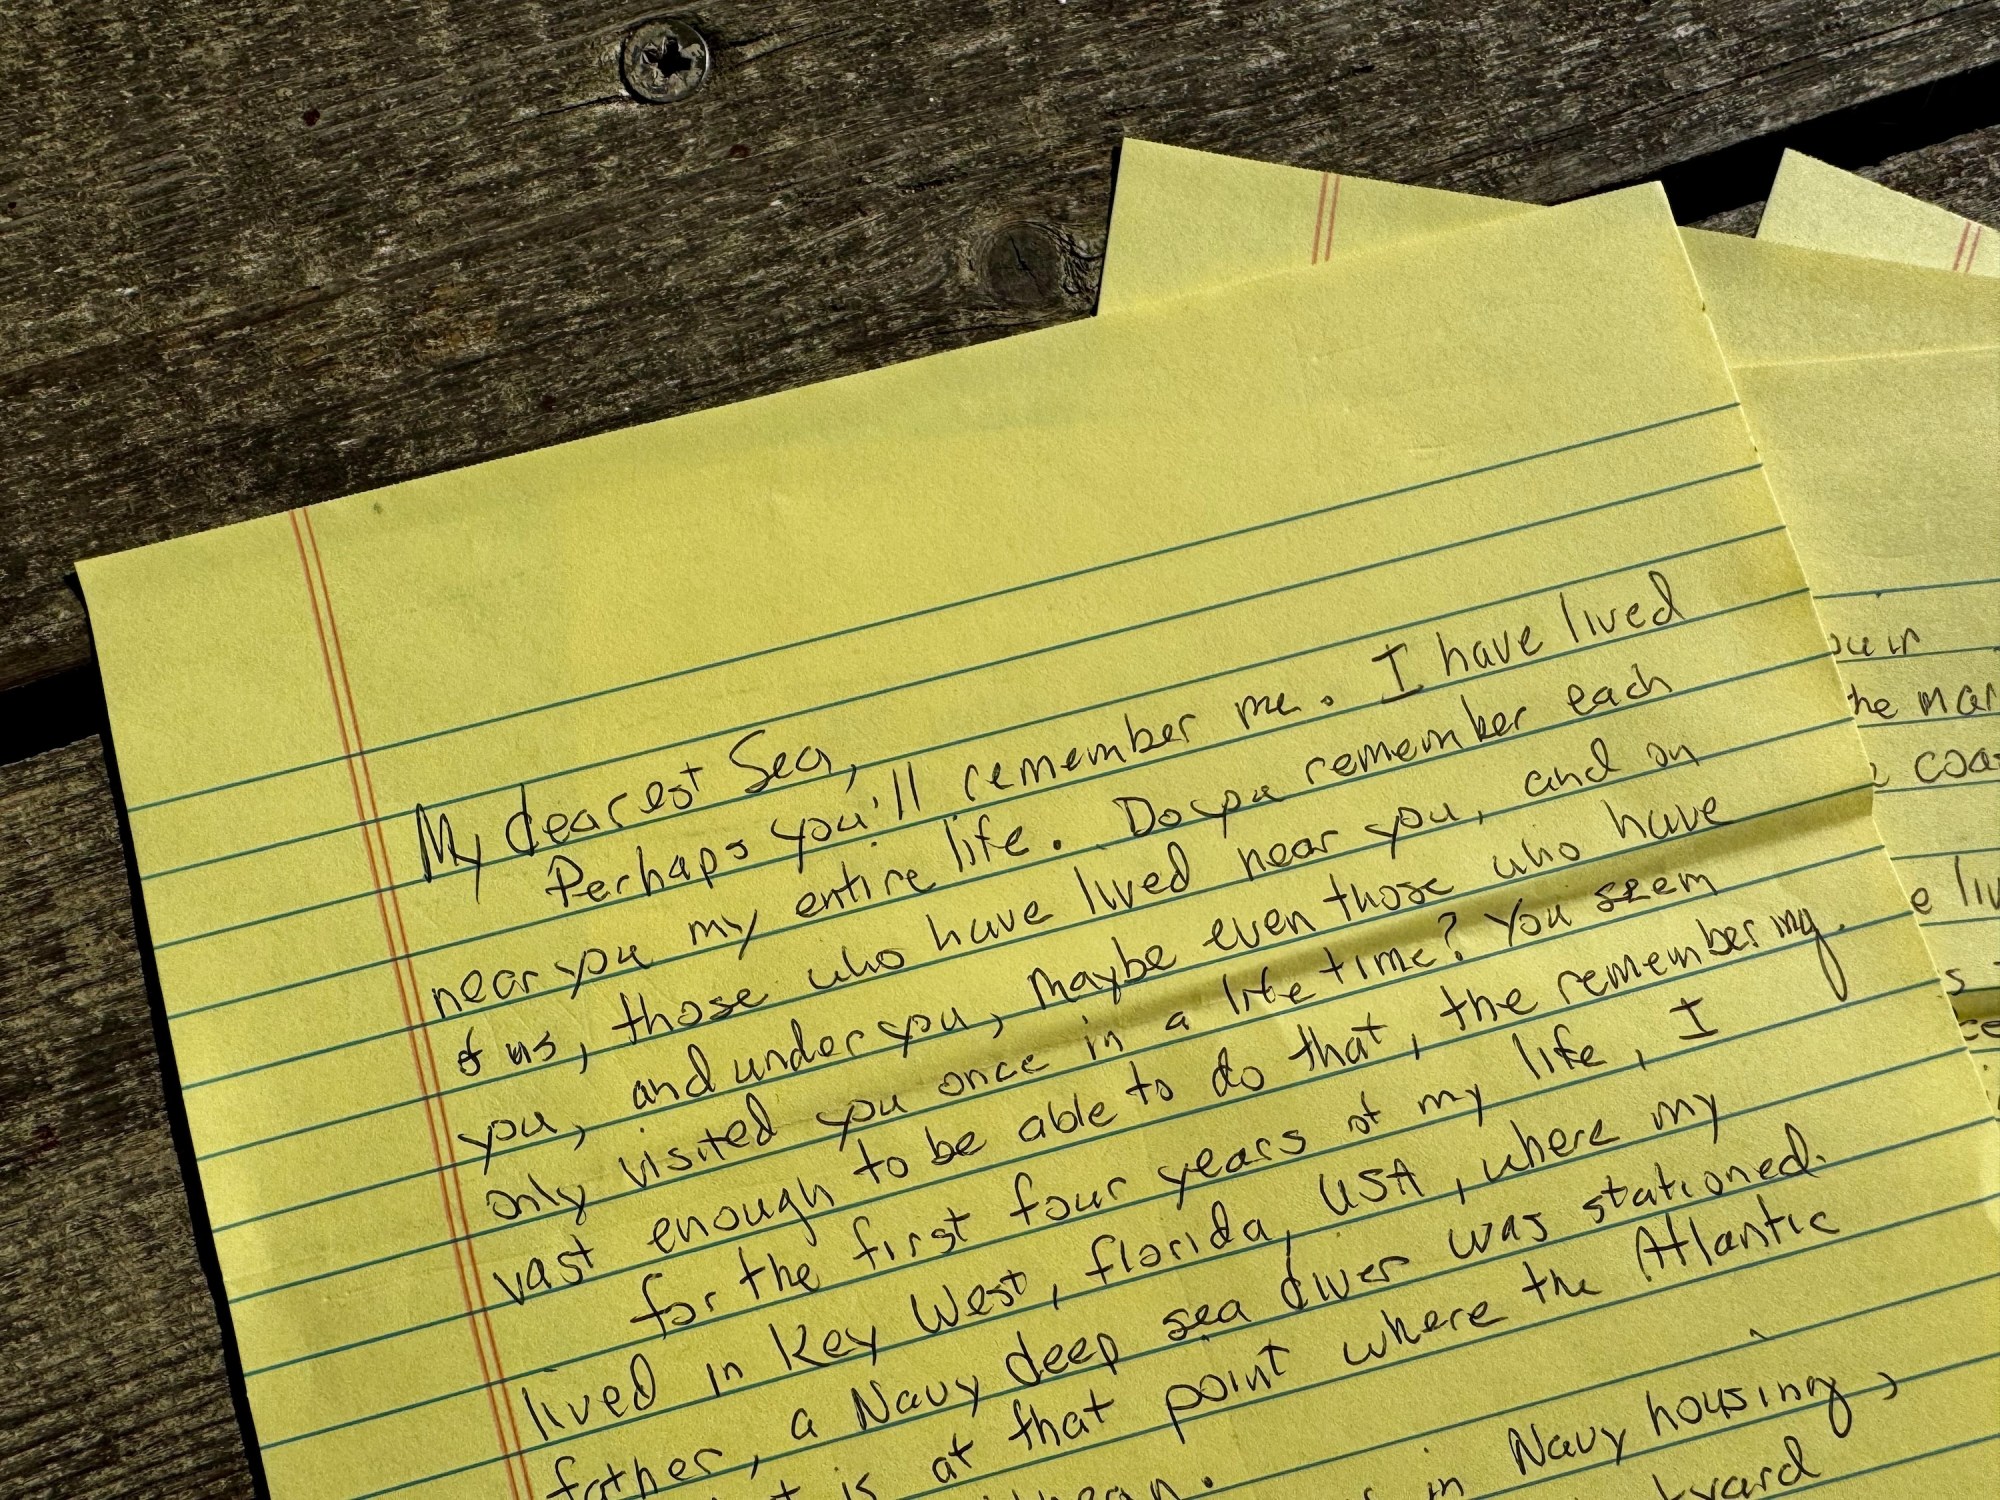 My dearest Sea,
Perhaps you'll remember me. I have lived
near you my entire life. Do you remember each
of us, those who have lived near you, and on
you, and under you, maybe even those who have
only visited you once in a life time? You seem
vast enough to be able to do that, the remembering.
for the first four years of my life, I
lived in Key West, Florida, USA, where my
father, a Navy deep sea diver was stationed.
is at that point where the Atlantic
in Navy housing,
the mar
e
s